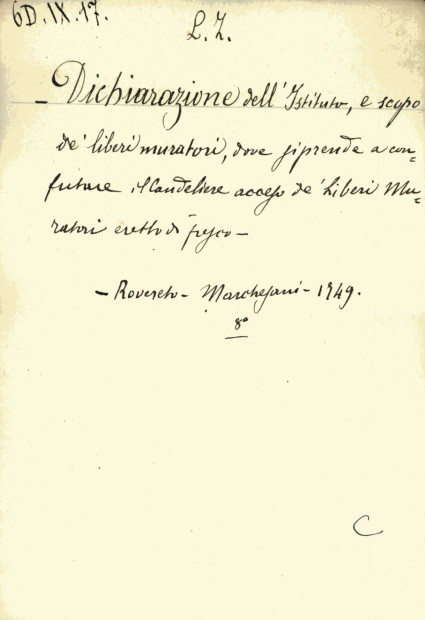 6D.IX.17.
L. Z.
- Dichiarazione dell'Istituto, e scopo
de' liberi muratori, dove si prende a con=
futare il Candeliere acceso de' Liberi Mu=
ratori eretto di fresco -
- Rovereto - Marchesani - 1749.
8°
C